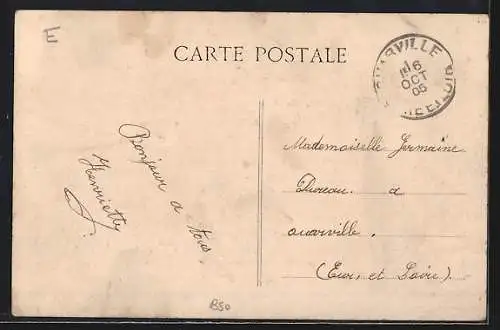 E
CARTE POSTALE
OUARVILLE
16
OCT
05
Bonjour a tous.
Henriette
Mademoiselle Germaine
Dureau. a
ouarville.
(Eure et Loire)
B50